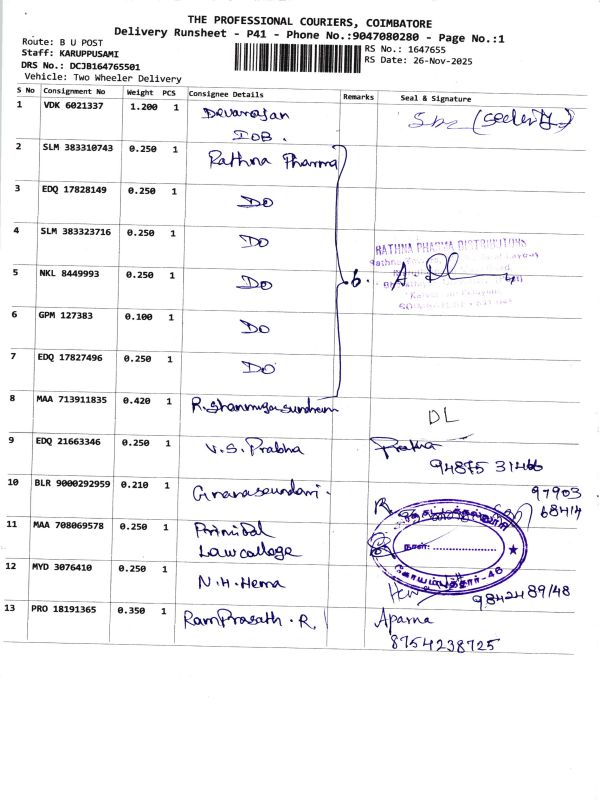 THE PROFESSIONAL COURIERS, COIMBATORE
Delivery Runsheet - P41 - Phone No.:9047080280 - Page No.:1
Route: B U POST
Staff: KARUPPUSAMI
DRS No.: DCJB164765501
Vehicle: Two Wheeler Delivery
RS No.: 1647655
RS Date: 26-Nov-2025
S No Consignment No Weight PCS Consignee Details Remarks Seal & Signature
1 VDK 6021337 1.200 1 Devarajan
IOB.
2 SLM 383310743 0.250 1 Rathna Pharma
3 EDQ 17828149 0.250 1 DO
4 SLM 383323716 0.250 1 DO
RATHNA PHARMA DISTRIBUTORS
5 NKL 8449993 0.250 1 DO 6.
6 GPM 127383 0.100 1 DO
7 EDQ 17827496 0.250 1 DO
8 MAA 713911835 0.420 1 R.Shanmugasundram DL
9 EDQ 21663346 0.250 1 V.S. Prabha Prabha
94875 31466
10 BLR 9000292959 0.210 1 Gnanasoundari. 97903
68414
11 MAA 708069578 0.250 1 Prinsipal
Law college
நாள்:
கோயமுத்தூர்-46
12 MYD 3076410 0.250 1 N.H. Hema
9842489148
13 PRO 18191365 0.350 1 RamPrasath. R. Aparna
8754238725